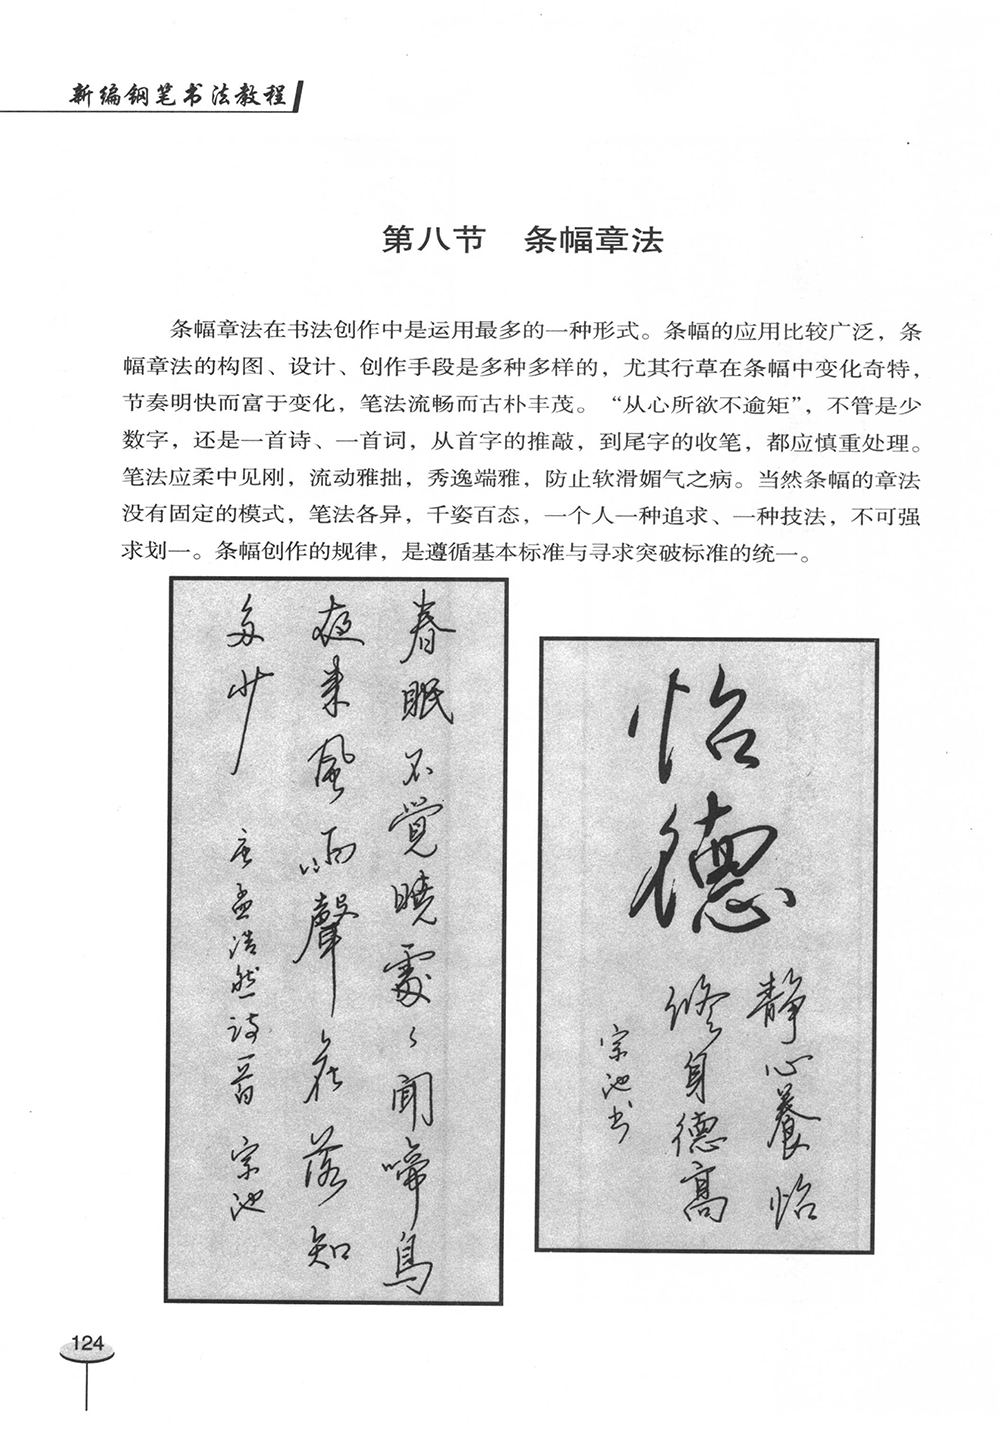 新编钢笔书法教程
第八节 条幅章法
条幅章法在书法创作中是运用最多的一种形式。条幅的应用比较广泛，条
幅章法的构图、设计、创作手段是多种多样的，尤其行草在条幅中变化奇特，
节奏明快而富于变化，笔法流畅而古朴丰茂。“从心所欲不逾矩”，不管是少
数字，还是一首诗、一首词，从首字的推敲，到尾字的收笔，都应慎重处理。
笔法应柔中见刚，流动雅拙，秀逸端雅，防止软滑媚气之病。当然条幅的章法
没有固定的模式，笔法各异，千姿百态，一个人一种追求、一种技法，不可强
求划一。条幅创作的规律，是遵循基本标准与寻求突破标准的统一。
春眠不觉曉處々聞啼鳥
夜来風雨聲花落知
多少
唐孟浩然诗一首 宗池
怡德
静心養怡
修身德高
宗池书
124